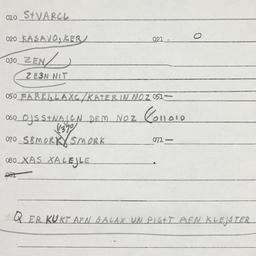 010 STVARCL
020 KASAVOJKER/ 021. O
030 ZEN/
ZE3H NIT
050 FAREHLAXC/KATERIN NOZ 051—
060 OJSSTNAJGN DEM NOZ 011010
070 SBMORK/SMORK 071—
080 XAS XALEJLE .
Q ER KUKT AFN GALAX UN PIGHT AFN KLEJSTER